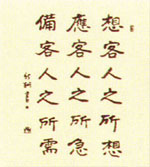 想客人之所想
應客人之所急
備客人之所需